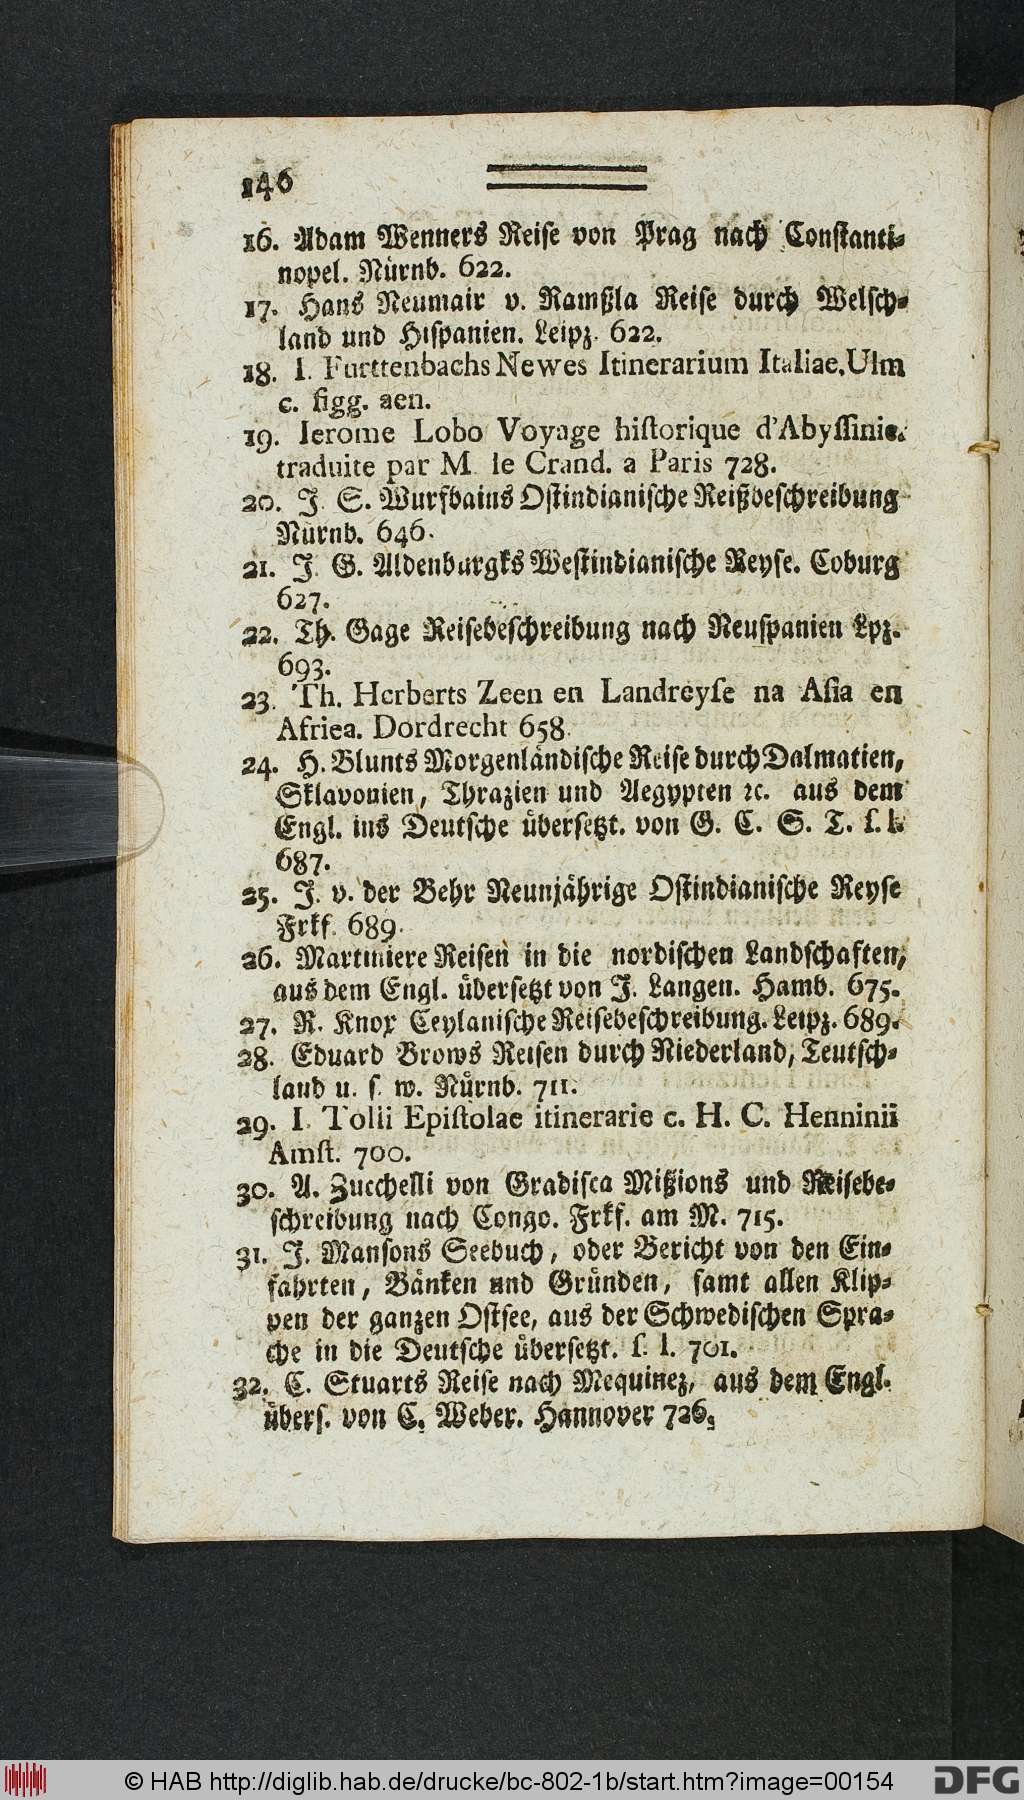 146
16. Adam Wenners Reise von Prag nach Constanti-
nopel. Nürnb. 622.
17. Hans Neumair v. Ramßla Reise durch Welsch-
land und Hispanien. Leipz. 622.
18. I. Furttenbachs Newes Itinerarium Italiae, Ulm
c. figg. aen.
19. Ierome Lobo Voyage hiſtorique d'Abyſſinie.
traduite par M. le Crand. a Paris 728.
20. J. S. Wurfbains Ostindianische Reißbeschreibung
Nürnb. 646.
21. J. G. Aldenburgks Westindianische Reyse. Coburg
627.
22. Th. Gage Reisebeschreibung nach Neuspanien Lpz.
693.
23. Th. Herberts Zeen en Landreyſe na Aſia en
Afriea. Dordrecht 658.
24. H. Blunts Morgenländische Reise durch Dalmatien,
Sklavonien, Thrazien und Aegypten ꝛc. aus dem
Engl. ins Deutsche übersetzt. von G. C. S. T. ſ. l.
687.
25. J. v. der Behr Neunjährige Ostindianische Reyse
Frkf. 689.
26. Martiniere Reisen in die nordischen Landschaften,
aus dem Engl. übersetzt von J. Langen. Hamb. 675.
27. R. Knox Ceylanische Reisebeschreibung. Leipz. 689.
28. Eduard Brows Reisen durch Niederland, Teutsch-
land u. s. w. Nürnb. 711.
29. I. Tolii Epiſtolae itinerarie c. H. C. Henninii
Amſt. 700.
30. A. Zucchelli von Gradisca Mißions und Reisebe-
schreibung nach Congo. Frkf. am M. 715.
31. J. Mansons Seebuch, oder Bericht von den Ein-
fahrten, Bänken und Gründen, samt allen Klip-
pen der ganzen Ostsee, aus der Schwedischen Spra-
che in die Deutsche übersetzt. ſ. l. 701.
32. C. Stuarts Reise nach Mequinez, aus dem Engl.
übers. von C. Weber. Hannover 726.
© HAB http://diglib.hab.de/drucke/bc-802-1b/start.htm?image=00154
DFG